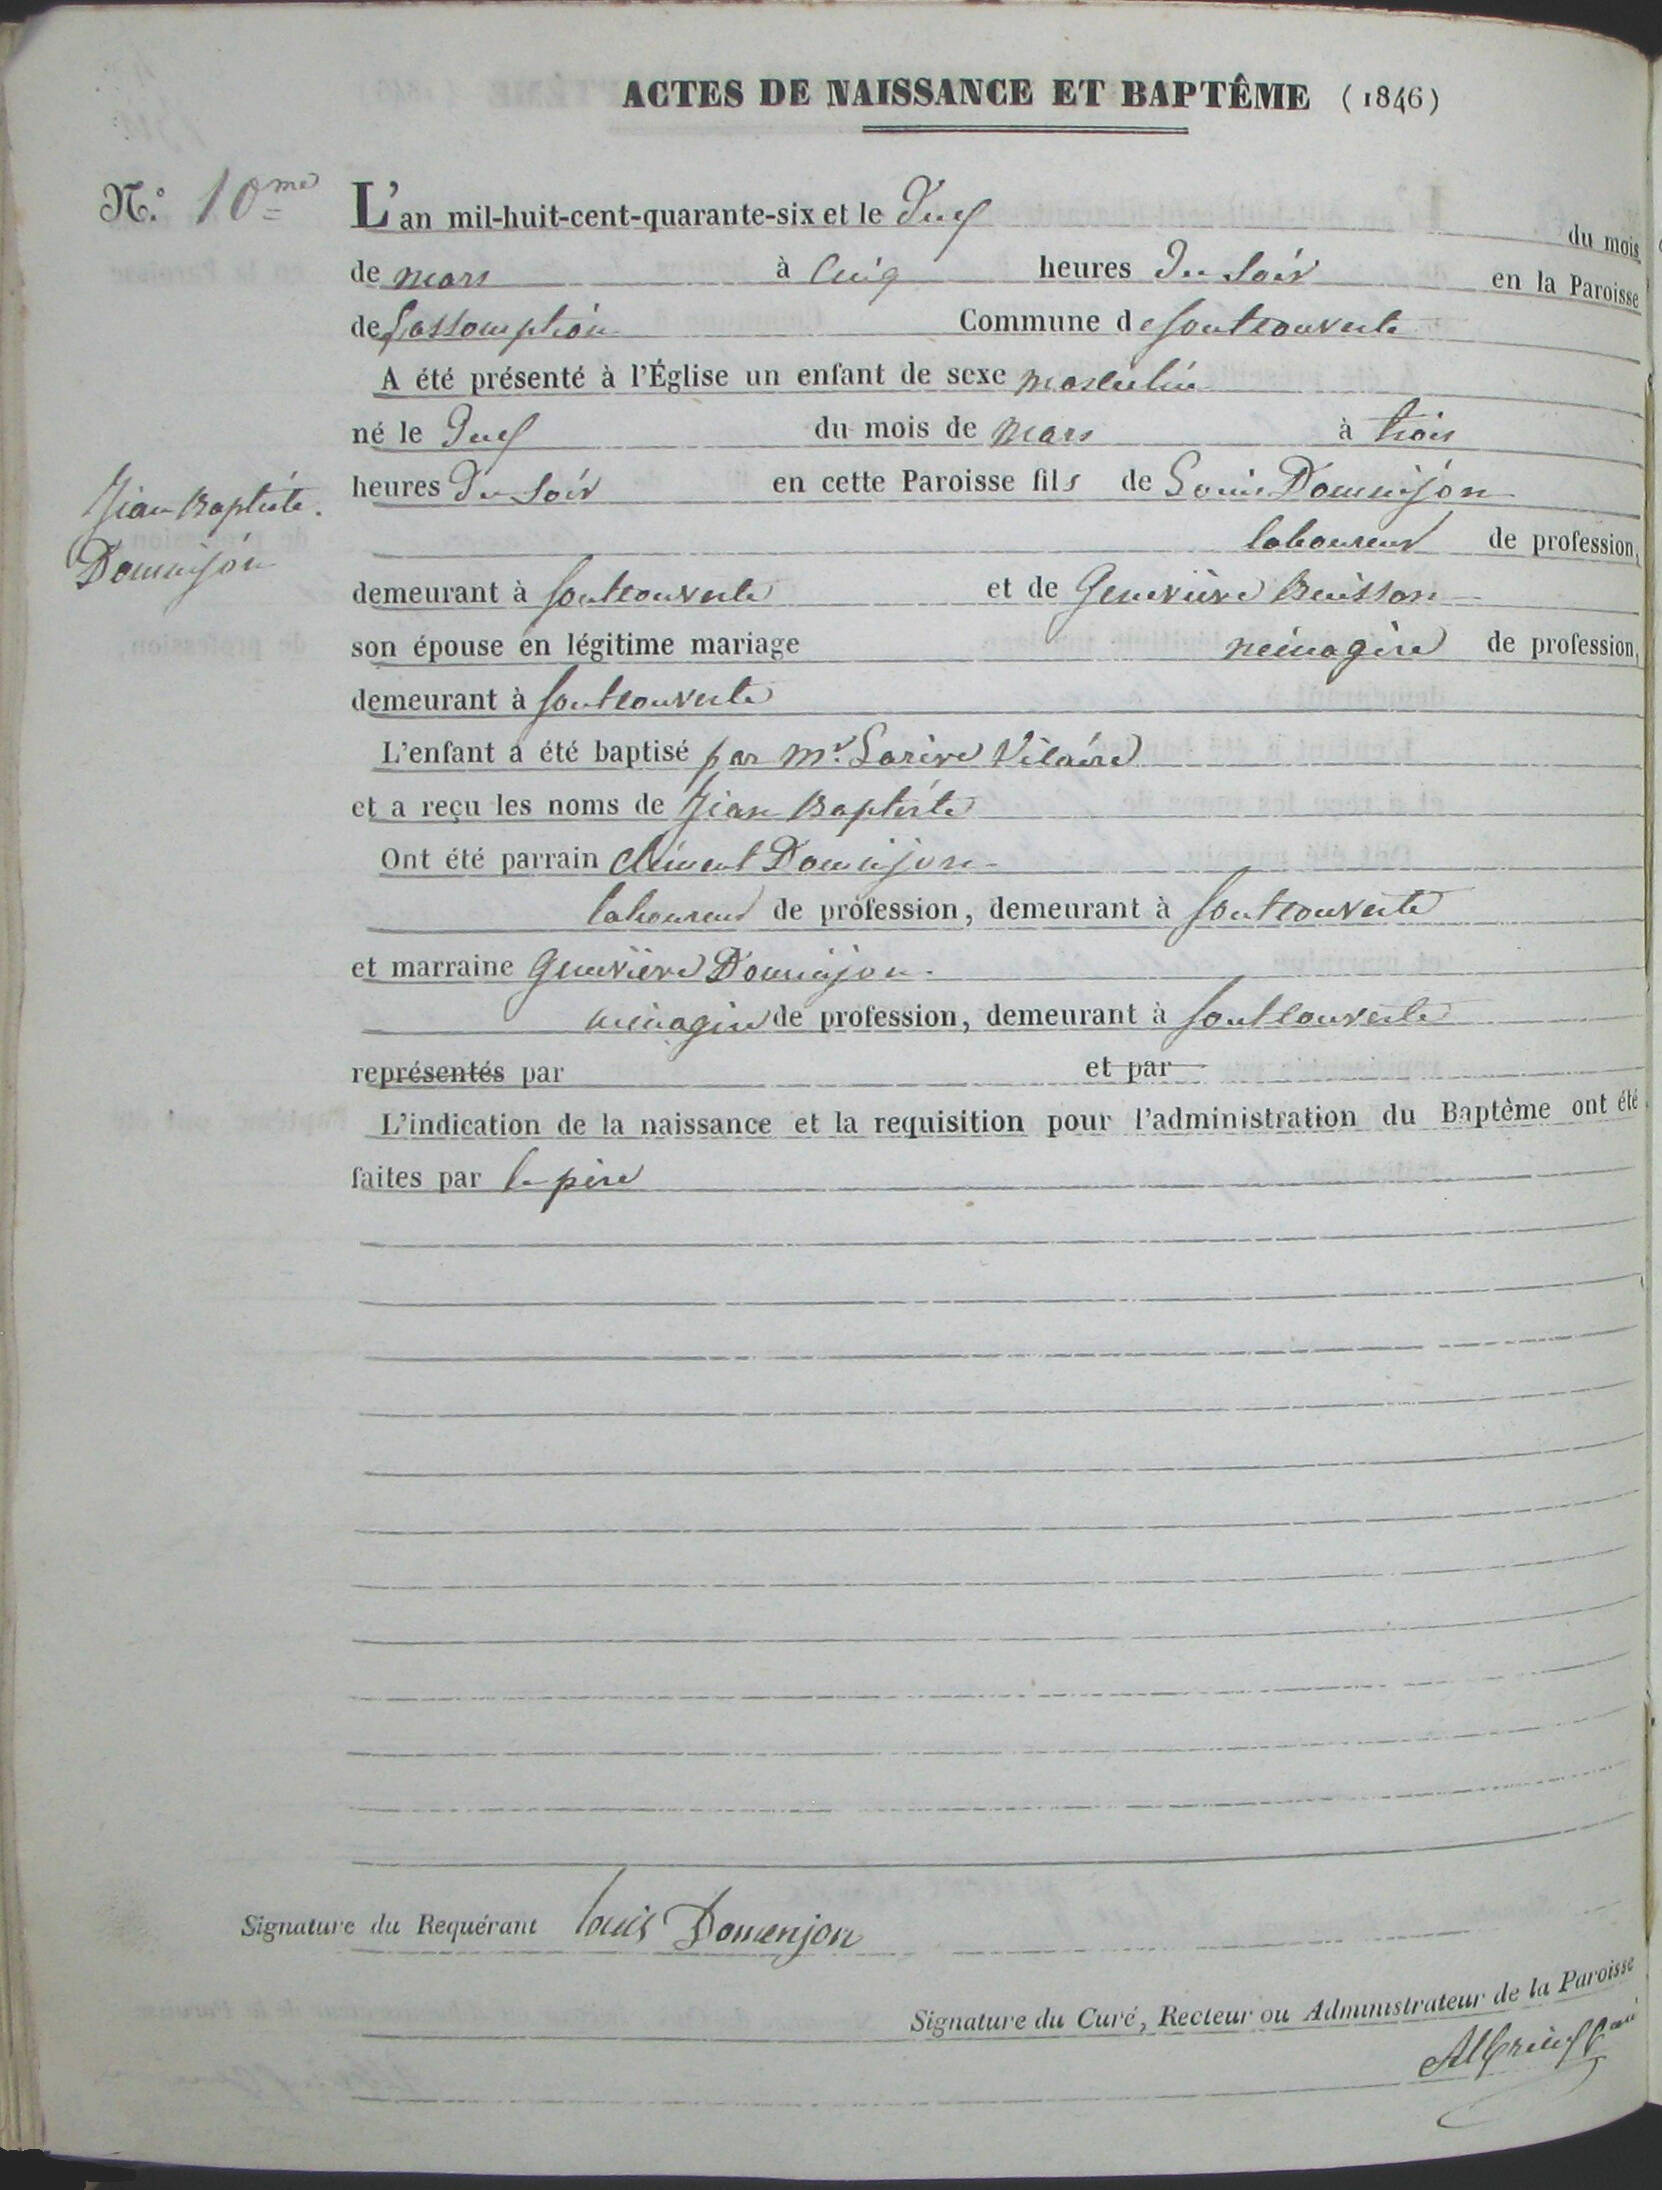 ACTES DE NAISSANCE ET BAPTÊME (1846)
N.° 10me
L'an mil-huit-cent-quarante-six et le Neuf du mois
de mars à Cinq heures Du Soir en la Paroisse
de Lassomption Commune de Fontcouverte
A été présenté à l'Église un enfant de sexe masculin
né le Neuf du mois de mars à trois
heures Du Soir en cette Paroisse fils de Louis Domenjon
Jean Baptiste
Domenjon
laboureur de profession,
demeurant à fontcouverte et de Geneviève Buisson
son épouse en légitime mariage ménagère de profession,
demeurant à fontcouverte
L'enfant a été baptisé par Mr. Larive Vicaire
et a reçu les noms de Jean Baptiste
Ont été parrain Clément Domenjon
laboureur de profession, demeurant à fontcouverte
et marraine Geneviève Domenjon
ménagère de profession, demeurant à fontcouverte
représentés par et par
L'indication de la naissance et la requisition pour l'administration du Baptème ont été
faites par le père
Signature du Requérant louis Domenjon
Signature du Curé, Recteur ou Administrateur de la Paroisse